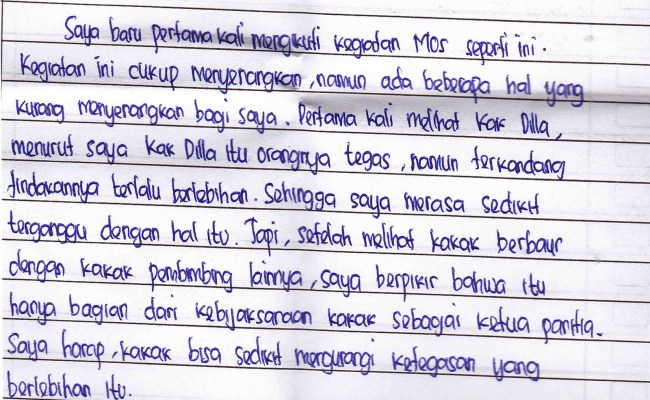 Saya baru pertama kali mengikuti kegiatan MOS seperti ini.
Kegiatan ini cukup menyenangkan, namun ada beberapa hal yang
kurang menyenangkan bagi saya. Pertama kali melihat kak Dilla,
menurut saya kak Dilla itu orangnya tegas, namun terkandang
tindakannya terlalu berlebihan. Sehingga saya merasa sedikit
terganggu dengan hal itu. Tapi, setelah melihat kakak berbaur
dengan kakak pembimbing lainnya, saya berpikir bahwa itu
hanya bagian dari kebijaksanaan kakak sebagai ketua panitia.
Saya harap, kakak bisa sedikit mengurangi ketegasan yang
berlebihan itu.